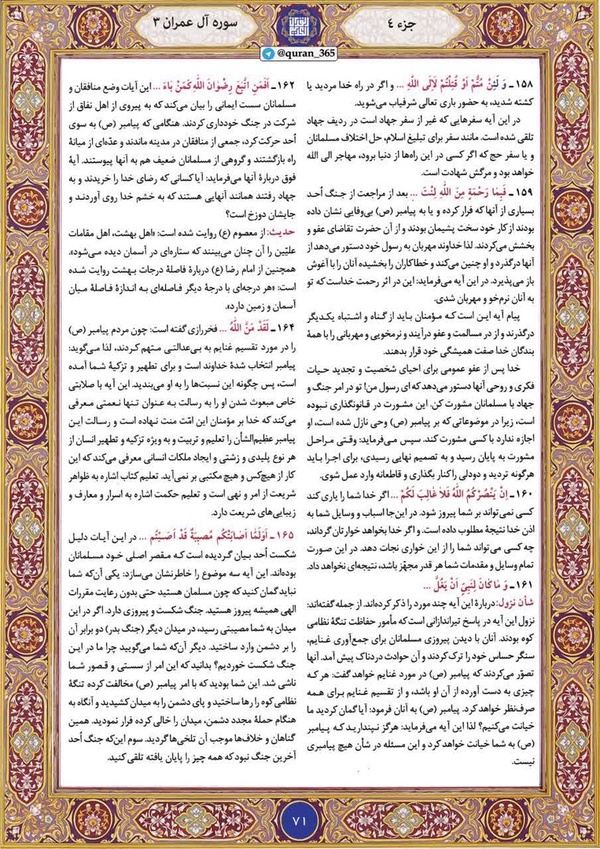 جزء ۴
سوره آل عمران ۳
@quran_365
۱۵۸ـ وَ لَئِنْ مُتُّمْ أَوْ قُتِلْتُمْ لَإِلَى اللَّهِ ... و اگر در راه خدا مردید یا
کشته شدید، به حضور باری تعالی شرفیاب می‌شوید.
در این آیه سفرهایی که غیر از سفر جهاد است در ردیف جهاد
تلقی شده است. مانند سفر برای تبلیغ اسلام، حل اختلاف مسلمانان
و یا سفر حج که اگر کسی در این راه‌ها از دنیا برود، مهاجر الی الله
خواهد بود و مرگش شهادت است.
۱۵۹ـ فَبِمَا رَحْمَةٍ مِنَ اللَّهِ لِنْتَ ... بعد از مراجعت از جنگ اُحد
بسیاری از آنها که فرار کرده و یا به پیامبر (ص) بی‌وفایی نشان داده
بودند از کار خود سخت پشیمان بودند و از آن حضرت تقاضای عفو و
بخشش می‌کردند. لذا خداوند مهربان به رسول خود دستور می‌دهد از
آنها درگذرد و او چنین می‌کند و خطاکاران را بخشیده آنان را با آغوش
باز می‌پذیرد. در این آیه می‌فرماید: این در اثر رحمت خداست که تو
به آنان نرم‌خو و مهربان شدی.
پیام آیه این است که مؤمنان باید از گناه و اشتباه یکدیگر
درگذرند و از در مسالمت و عفو درآیند و نرمخویی و مهربانی را با همهٔ
بندگان خدا صفت همیشگی خود قرار بدهند.
خدا پس از عفو عمومی برای احیای شخصیت و تجدید حیات
فکری و روحی آنها دستور می‌دهد که ای رسول من! تو در امر جنگ و
جهاد با مسلمانان مشورت کن. این مشورت در قانونگذاری نبوده
است، زیرا در موضوعاتی که بر پیامبر (ص) وحی نازل شده است، او
اجازه ندارد با کسی مشورت کند. سپس می‌فرماید: وقتی مراحل
مشورت به پایان رسید و به تصمیم نهایی رسیدی، برای اجرا باید
هرگونه تردید و دودلی را کنار بگذاری و قاطعانه وارد عمل شوی.
۱۶۰ـ إِنْ يَنْصُرْكُمُ اللَّهُ فَلَا غَالِبَ لَكُمْ ... اگر خدا شما را یاری کند
کسی نمی‌تواند بر شما پیروز شود. در این‌جا اسباب و وسایل شما به
اذن خدا نتیجهٔ مطلوب داده است. و اگر خدا بخواهد خوارتان گرداند،
چه کسی می‌تواند شما را از این خواری نجات دهد. در این صورت
تمام وسایل و مقدمات شما هر قدر مجهّز باشد، نتیجه‌ای نخواهد داد.
۱۶۱ـ وَ مَا كَانَ لِنَبِيٍّ أَنْ يَغُلَّ ...
شأن نزول: دربارهٔ این آیه چند مورد را ذکر کرده‌اند. از جمله گفته‌اند:
نزول این آیه در پاسخ تیراندازانی است که مأمور حفاظت تنگهٔ نظامی
کوه بودند. آنان با دیدن پیروزی مسلمانان برای جمع‌آوری غنایم،
سنگر حساس خود را ترک کردند و آن حوادث دردناک پیش آمد. آنها
تصوّر می‌کردند که پیامبر (ص) در مورد غنایم خواهد گفت: هر که
چیزی به دست آورده از آن او باشد، و از تقسیم غنایم برای همه
صرف‌نظر خواهد کرد. پیامبر (ص) به آنان فرمود: آیا گمان کردید ما
خیانت می‌کنیم؟ لذا این آیه می‌فرماید: هرگز نپندارید که پیامبر
(ص) به شما خیانت خواهد کرد و این مسئله در شأن هیچ پیامبری
نیست.
۱۶۲ـ أَفَمَنِ اتَّبَعَ رِضْوَانَ اللَّهِ كَمَنْ بَاءَ ... این آیات وضع منافقان و
مسلمانان سست ایمانی را بیان می‌کند که به پیروی از اهل نفاق از
شرکت در جنگ خودداری کردند. هنگامی که پیامبر (ص) به سوی
اُحد حرکت کرد، جمعی از منافقان در مدینه ماندند و عدّه‌ای از میانهٔ
راه بازگشتند و گروهی از مسلمانان ضعیف هم به آنها پیوستند. آیهٔ
فوق دربارهٔ آنها می‌فرماید: آیا کسانی که رضای خدا را خریدند و به
جهاد رفتند همانند آنهایی هستند که به خشم خدا روی آوردند و
جایشان دوزخ است؟
حدیث: از معصوم (ع) روایت شده است: «اهل بهشت، اهل مقامات
علیّین را آن چنان می‌بینند که ستاره‌ای در آسمان دیده می‌شود».
همچنین از امام رضا (ع) دربارهٔ فاصلهٔ درجات بهشت روایت شده
است: «هر درجه‌ای با درجهٔ دیگر فاصله‌ای به اندازهٔ فاصلهٔ میان
آسمان و زمین دارد».
۱۶۴ـ لَقَدْ مَنَّ اللَّهُ ... فخررازی گفته است: چون مردم پیامبر (ص)
را در مورد تقسیم غنایم به بی‌عدالتی متهم کردند، لذا می‌گوید:
پیامبر انتخاب شدهٔ خداوند است و برای تطهیر و تزکیهٔ شما آمده
است، پس چگونه این نسبت‌ها را به او می‌بندید. این آیه با صلابتی
خاص مبعوث شدن او را به رسالت به عنوان تنها نعمتی معرفی
می‌کند که خدا بر مؤمنان این امّت منت نهاده است و رسالت این
پیامبر عظیم‌الشأن را تعلیم و تربیت و به ویژه تزکیه و تطهیر انسان از
هر نوع پلیدی و زشتی و ایجاد ملکات انسانی معرفی می‌کند که این
کار از هیچ‌کس و هیچ مکتبی بر نمی‌آید. تعلیم کتاب اشاره به ظواهر
شریعت از امر و نهی است و تعلیم حکمت اشاره به اسرار و معارف و
زیبایی‌های شریعت دارد.
۱۶۵ـ أَوَلَمَّا أَصَابَتْكُمْ مُصِيبَةٌ قَدْ أَصَبْتُمْ ... در این آیات دلیل
شکست اُحد بیان گردیده است که مقصر اصلی خود مسلمانان
بوده‌اند. این آیه سه موضوع را خاطرنشان می‌سازد: یکی آن‌که شما
نباید گمان کنید که چون مسلمان هستید حتی بدون رعایت مقررات
الهی همیشه پیروز هستید. جنگ شکست و پیروزی دارد. اگر در این
میدان به شما مصیبتی رسید، در میدان دیگر (جنگ بدر) دو برابر آن
را بر دشمن وارد ساختید. دیگر آن‌که شما می‌گویید چرا ما در این
جنگ شکست خوردیم؟ بدانید که این امر از سستی و قصور شما
ناشی شد. این شما بودید که با امر پیامبر (ص) مخالفت کرده تنگهٔ
نظامی کوه را رها ساختید و پای دشمن را به میدان کشیدید و آنگاه به
هنگام حملهٔ مجدد دشمن، میدان را خالی کرده فرار نمودید. همین
گناهان و خلاف‌ها موجب آن تلخی‌ها گردید. سوم این‌که جنگ اُحد
آخرین جنگ نبود که همه چیز را پایان یافته تلقی کنید.
۷۱